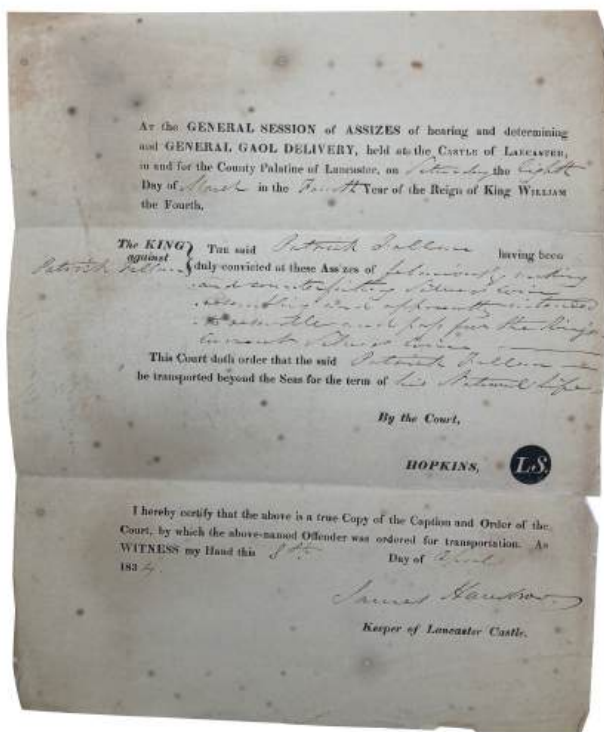 At the GENERAL SESSION of ASSIZES of hearing and determining
and GENERAL GAOL DELIVERY, held at the CASTLE of LANCASTER,
in and for the County Palatine of Lancaster, on Saturday the Eighth
Day of March in the Fourth Year of the Reign of King WILLIAM
the Fourth.
The KING
against
Patrick
THE said Patrick having been
duly convicted at these Assizes of feloniously making
and counterfeiting Silver Coin
resembling and apparently intended
to resemble and pass for the King's
current Silver Coin
This Court doth order that the said Patrick
be transported beyond the Seas for the term of his Natural Life
By the Court,
HOPKINS, L.S.
I hereby certify that the above is a true Copy of the Caption and Order of the
Court, by which the above-named Offender was ordered for transportation. As
WITNESS my Hand this 8th Day of April
1834.
James
Keeper of Lancaster Castle.